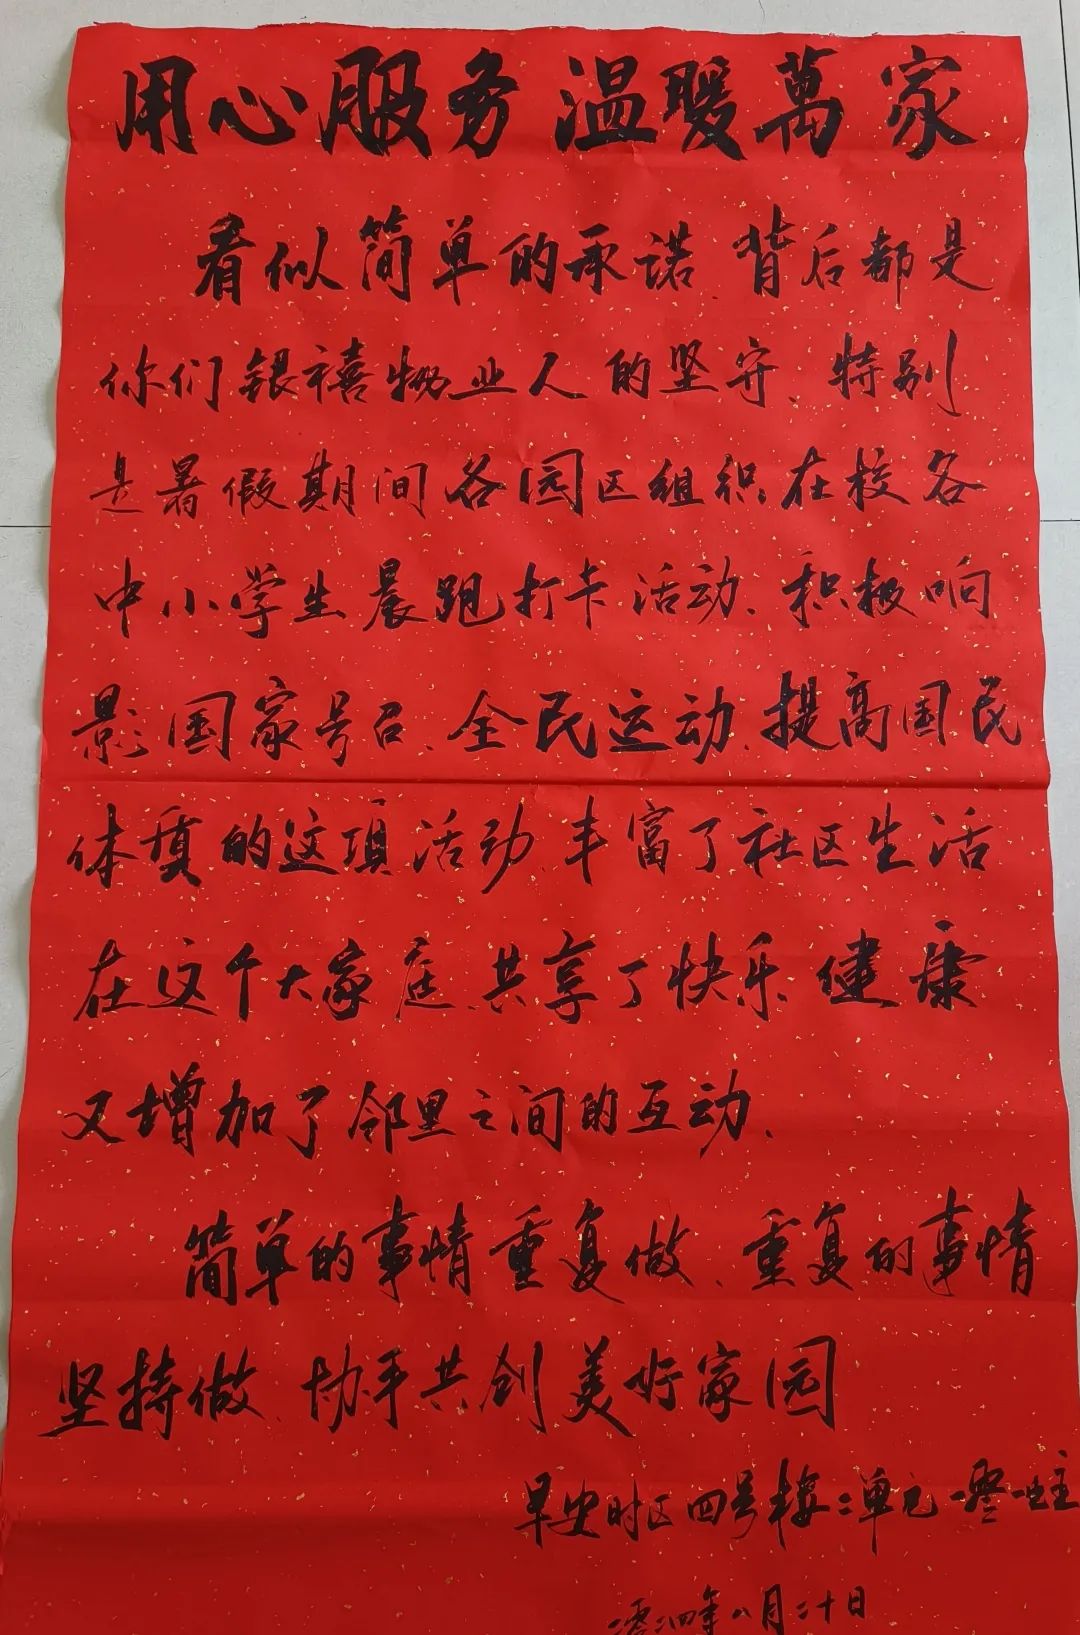 用心服务 温暖萬家
看似简单的承诺、背后都是
你们银禧物业人的坚守、特别
是暑假期间各园区组织在校各
中小学生晨跑打卡活动、积极响
影国家号召、全民运动、提高国民
体质的这项活动、丰富了社区生活
在这个大家庭、共享了快乐健康
又增加了邻里之间的互动、
简单的事情重复做、重复的事情
坚持做、协手共创美好家园
早安时区四号楼二单元
二零二四年八月二十日